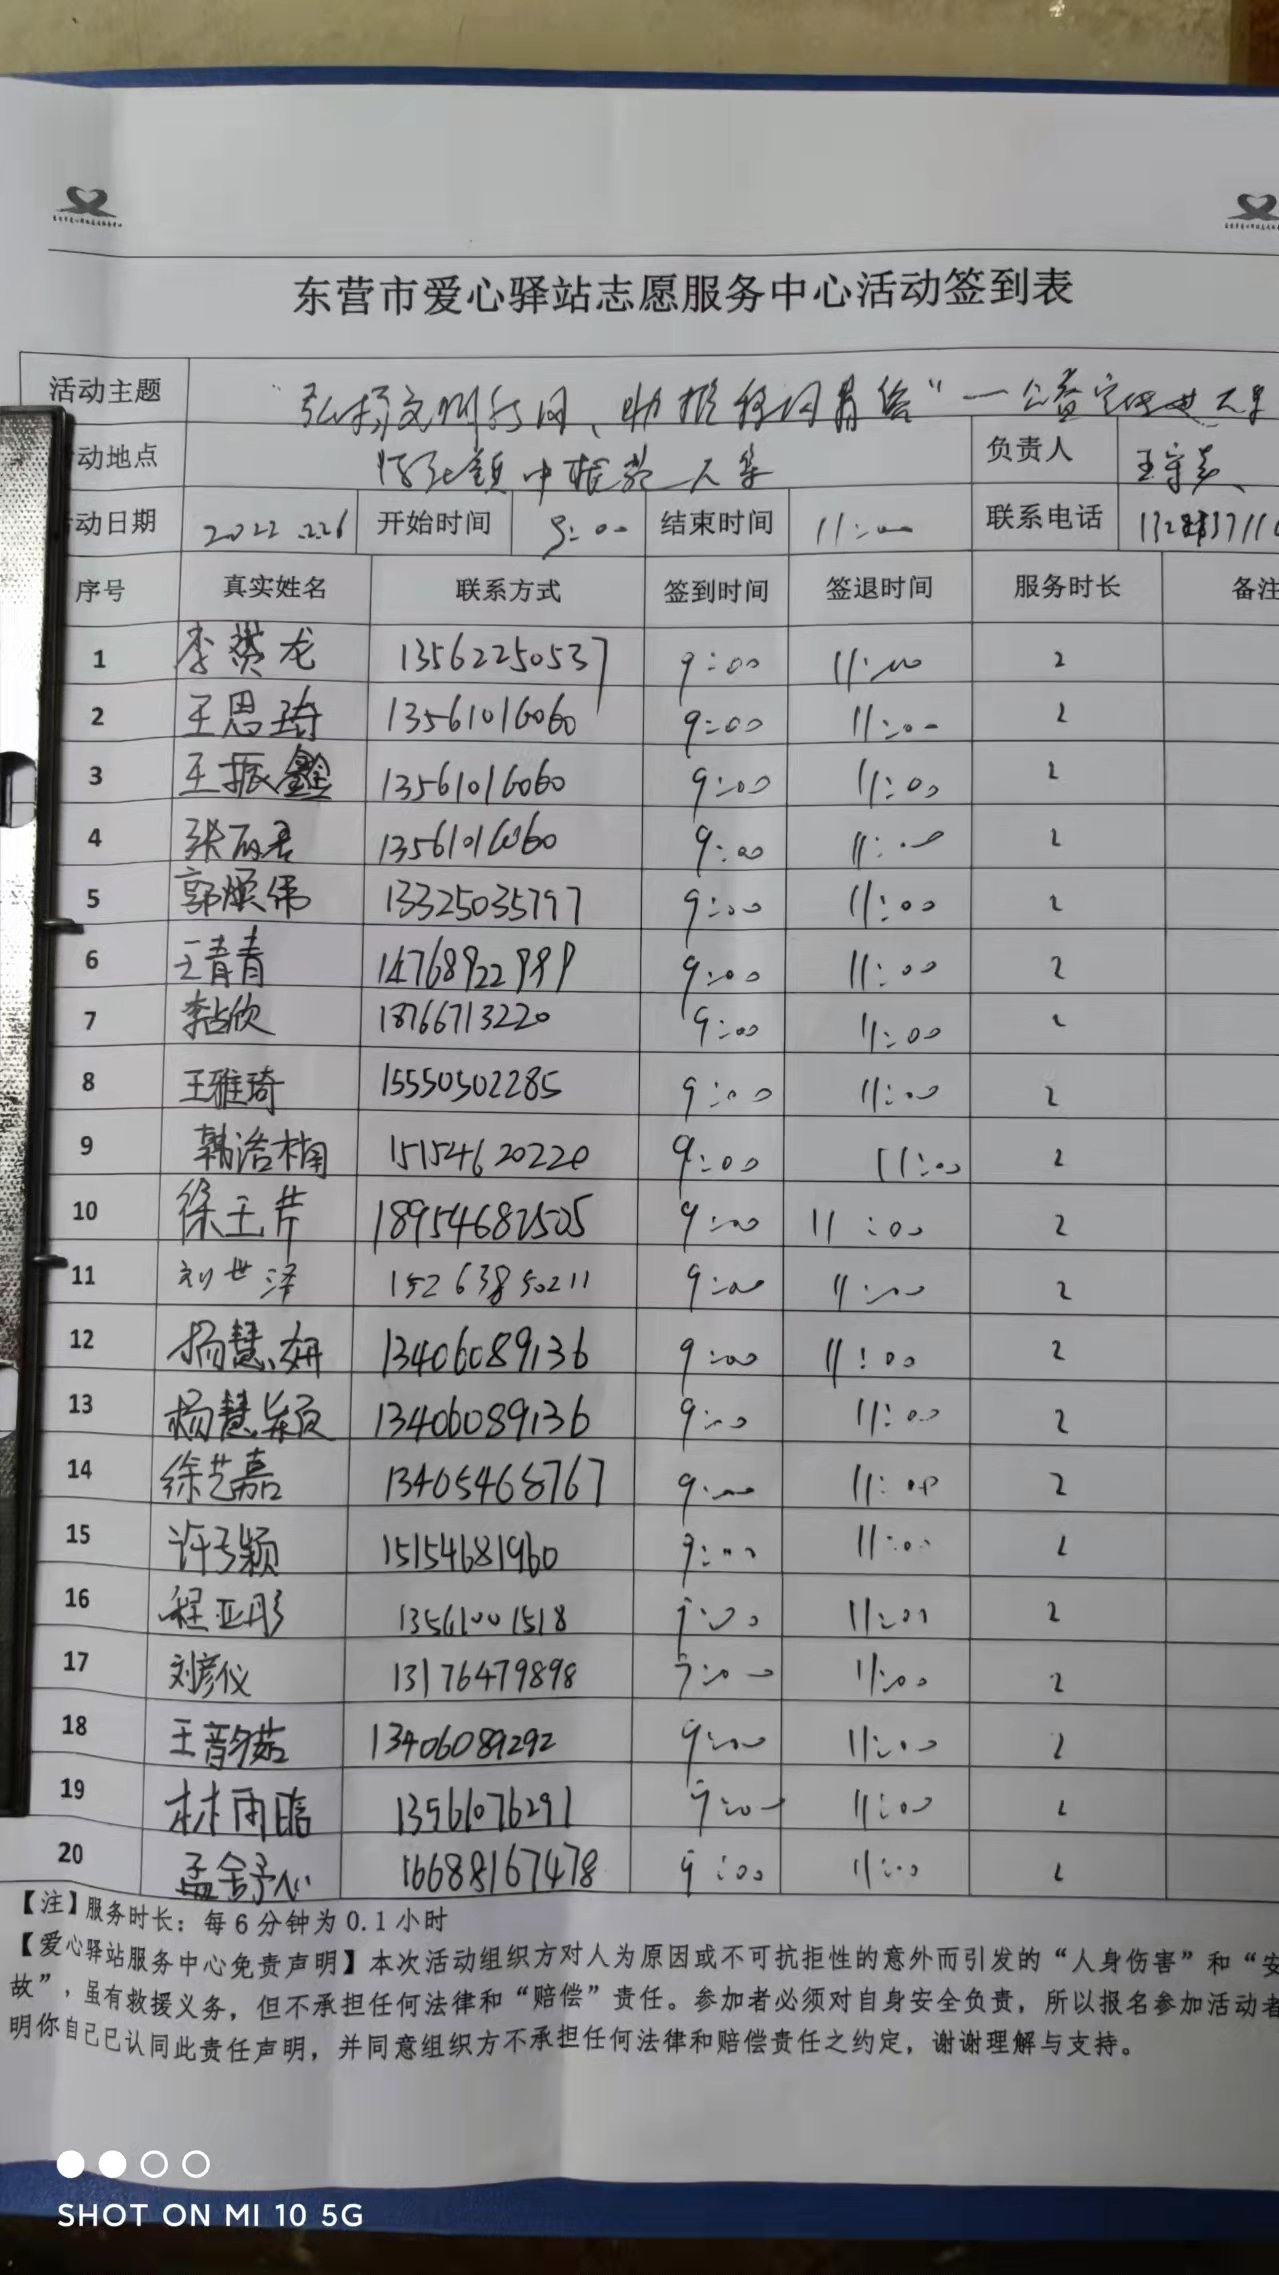 东营市爱心驿站志愿服务中心活动签到表
活动主题
动地点 负责人
动日期 2022.2.26 开始时间 9:00 结束时间 11:00 联系电话
序号 真实姓名 联系方式 签到时间 签退时间 服务时长 备注
1 李赟龙 13562250537 9:00 11:00 2
2 王思琦 13561016060 9:00 11:00 2
3 王振鑫 13561016060 9:00 11:00 2
4 13561016060 9:00 11:00 2
5 郭焕伟 13325035797 9:00 11:00 2
6 王青青 9:00 11:00 2
7 李占欣 18766713220 9:00 11:00 2
8 王雅琦 15550502285 9:00 11:00 2
9 韩浩楠 15154620220 9:00 11:00 2
10 徐玉芹 18954682505 9:00 11:00 2
11 刘世泽 15263850211 9:00 11:00 2
12 杨慧妍 13406089136 9:00 11:00 2
13 杨慧颖 13406089136 9:00 11:00 2
14 徐艺嘉 13405468767 9:00 11:00 2
15 15154681960 9:00 11:00 2
16 程亚彤 13561001518 9:00 11:00 2
17 刘彦仪 13176479898 9:00 11:00 2
18 王韵茹 13406089292 9:00 11:00 2
19 林雨临 13561076291 9:00 11:00 2
20 孟舒心 16688167478 9:00 11:00 2
【注】服务时长：每6分钟为0.1小时
【爱心驿站服务中心免责声明】本次活动组织方对人为原因或不可抗拒性的意外而引发的“人身伤害”和“安
故”，虽有救援义务，但不承担任何法律和“赔偿”责任。参加者必须对自身安全负责，所以报名参加活动者
明你自己已认同此责任声明，并同意组织方不承担任何法律和赔偿责任之约定，谢谢理解与支持。
SHOT ON MI 10 5G